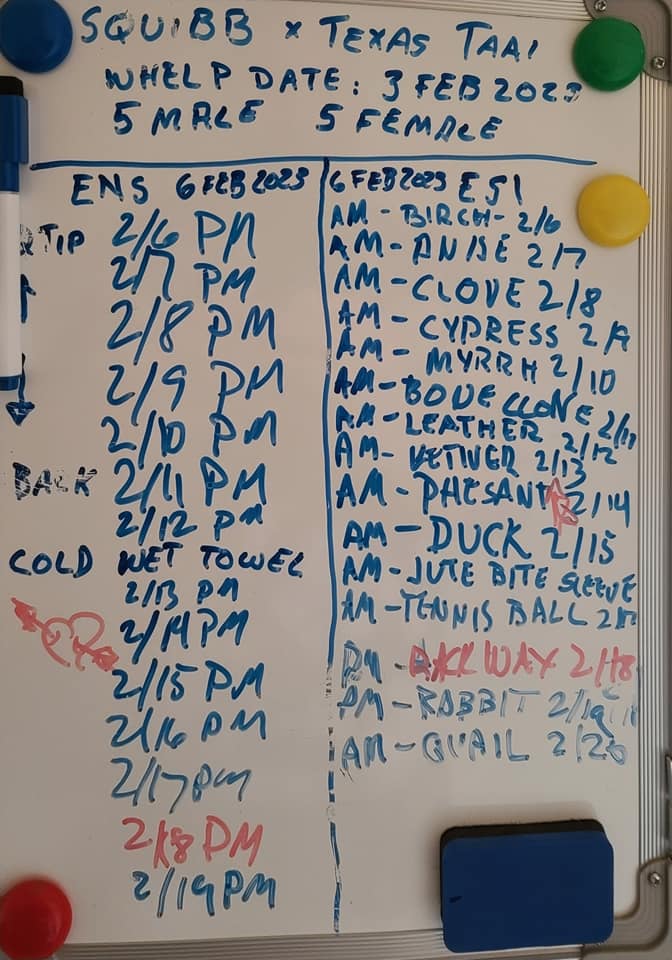 SQUIBB x TEXAS TAAI
WHELP DATE: 3 FEB 2023
5 MALE 5 FEMALE
ENS 6 FEB 2023
QTIP 2/6 PM
2/7 PM
2/8 PM
2/9 PM
2/10 PM
BACK 2/11 PM
2/12 PM
COLD WET TOWEL
2/13 PM
2/14 PM
2/15 PM
2/16 PM
2/17 PM
2/18 PM
2/19 PM
6 FEB 2023 ESI
AM - BIRCH - 2/6
AM - ANISE 2/7
AM - CLOVE 2/8
AM - CYPRESS 2/9
AM - MYRRH 2/10
AM - CLOVE 2/11
AM - LEATHER 2/12
AM - VETIVER 2/13
AM - PHESANT 2/14
AM - DUCK 2/15
AM - JUTE BITE SLEEVE
AM - TENNIS BALL
PM - 2/18
PM - RABBIT 2/19
AM - QUAIL 2/20